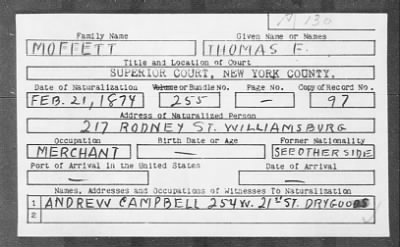 M 130
Family Name Given Name or Names
MOFFETT THOMAS F.
Title and Location of Court
SUPERIOR COURT, NEW YORK COUNTY.
Date of Naturalization Volume or Bundle No. Page No. Copy of Record No.
FEB. 21, 1874 255 — 97
Address of Naturalized Person
217 RODNEY ST. WILLIAMSBURG
Occupation Birth Date or Age Former Nationality
MERCHANT SEE OTHER SIDE
Port of Arrival in the United States Date of Arrival
Names, Addresses and Occupations of Witnesses To Naturalization
1 ANDREW CAMPBELL 254 W. 21ST ST. DRYGOODS
2